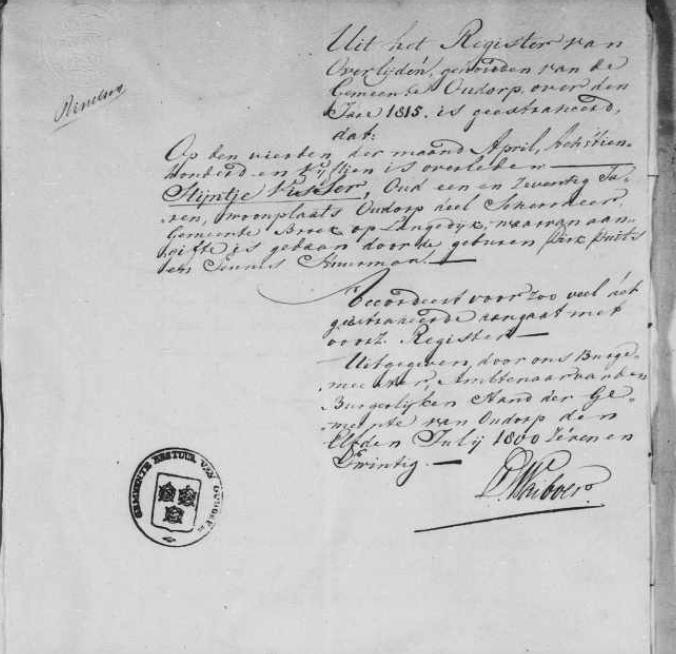 Uit het Register van
Overlijden, gehouden van de
Gemeente Oudorp over den
Jare 1815. is geextraheerd,
dat:
Op den vierden der maand April, achttien
honderd en vijftien is overleden
Stijntje Visser, Oud een en Zeventig Ja-
ren, woonplaats Oudorp deel Schoordeer,
Gemeente Broek op Langedijk, waarvan aan-
gifte is gedaan door de geburen Dirk Smits
en Teunis Stuurman.
Accordeert voor zoo veel het
geextraheerde aangaat met
voorz. Register
Uitgegeven door ons Burge-
meester, Ambtenaar van den
Burgerlijken Stand der Ge-
meente van Oudorp den
Elfden Julij 1800 Zeven en
Twintig.
GEMEENTE BESTUUR VAN OUDORP